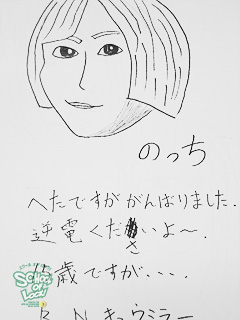 のっち
へたですががんばりました。
逆電くださいよ〜。
SCHOOL OF LOCK!
15歳ですが、、、、
R.N キョウミラー